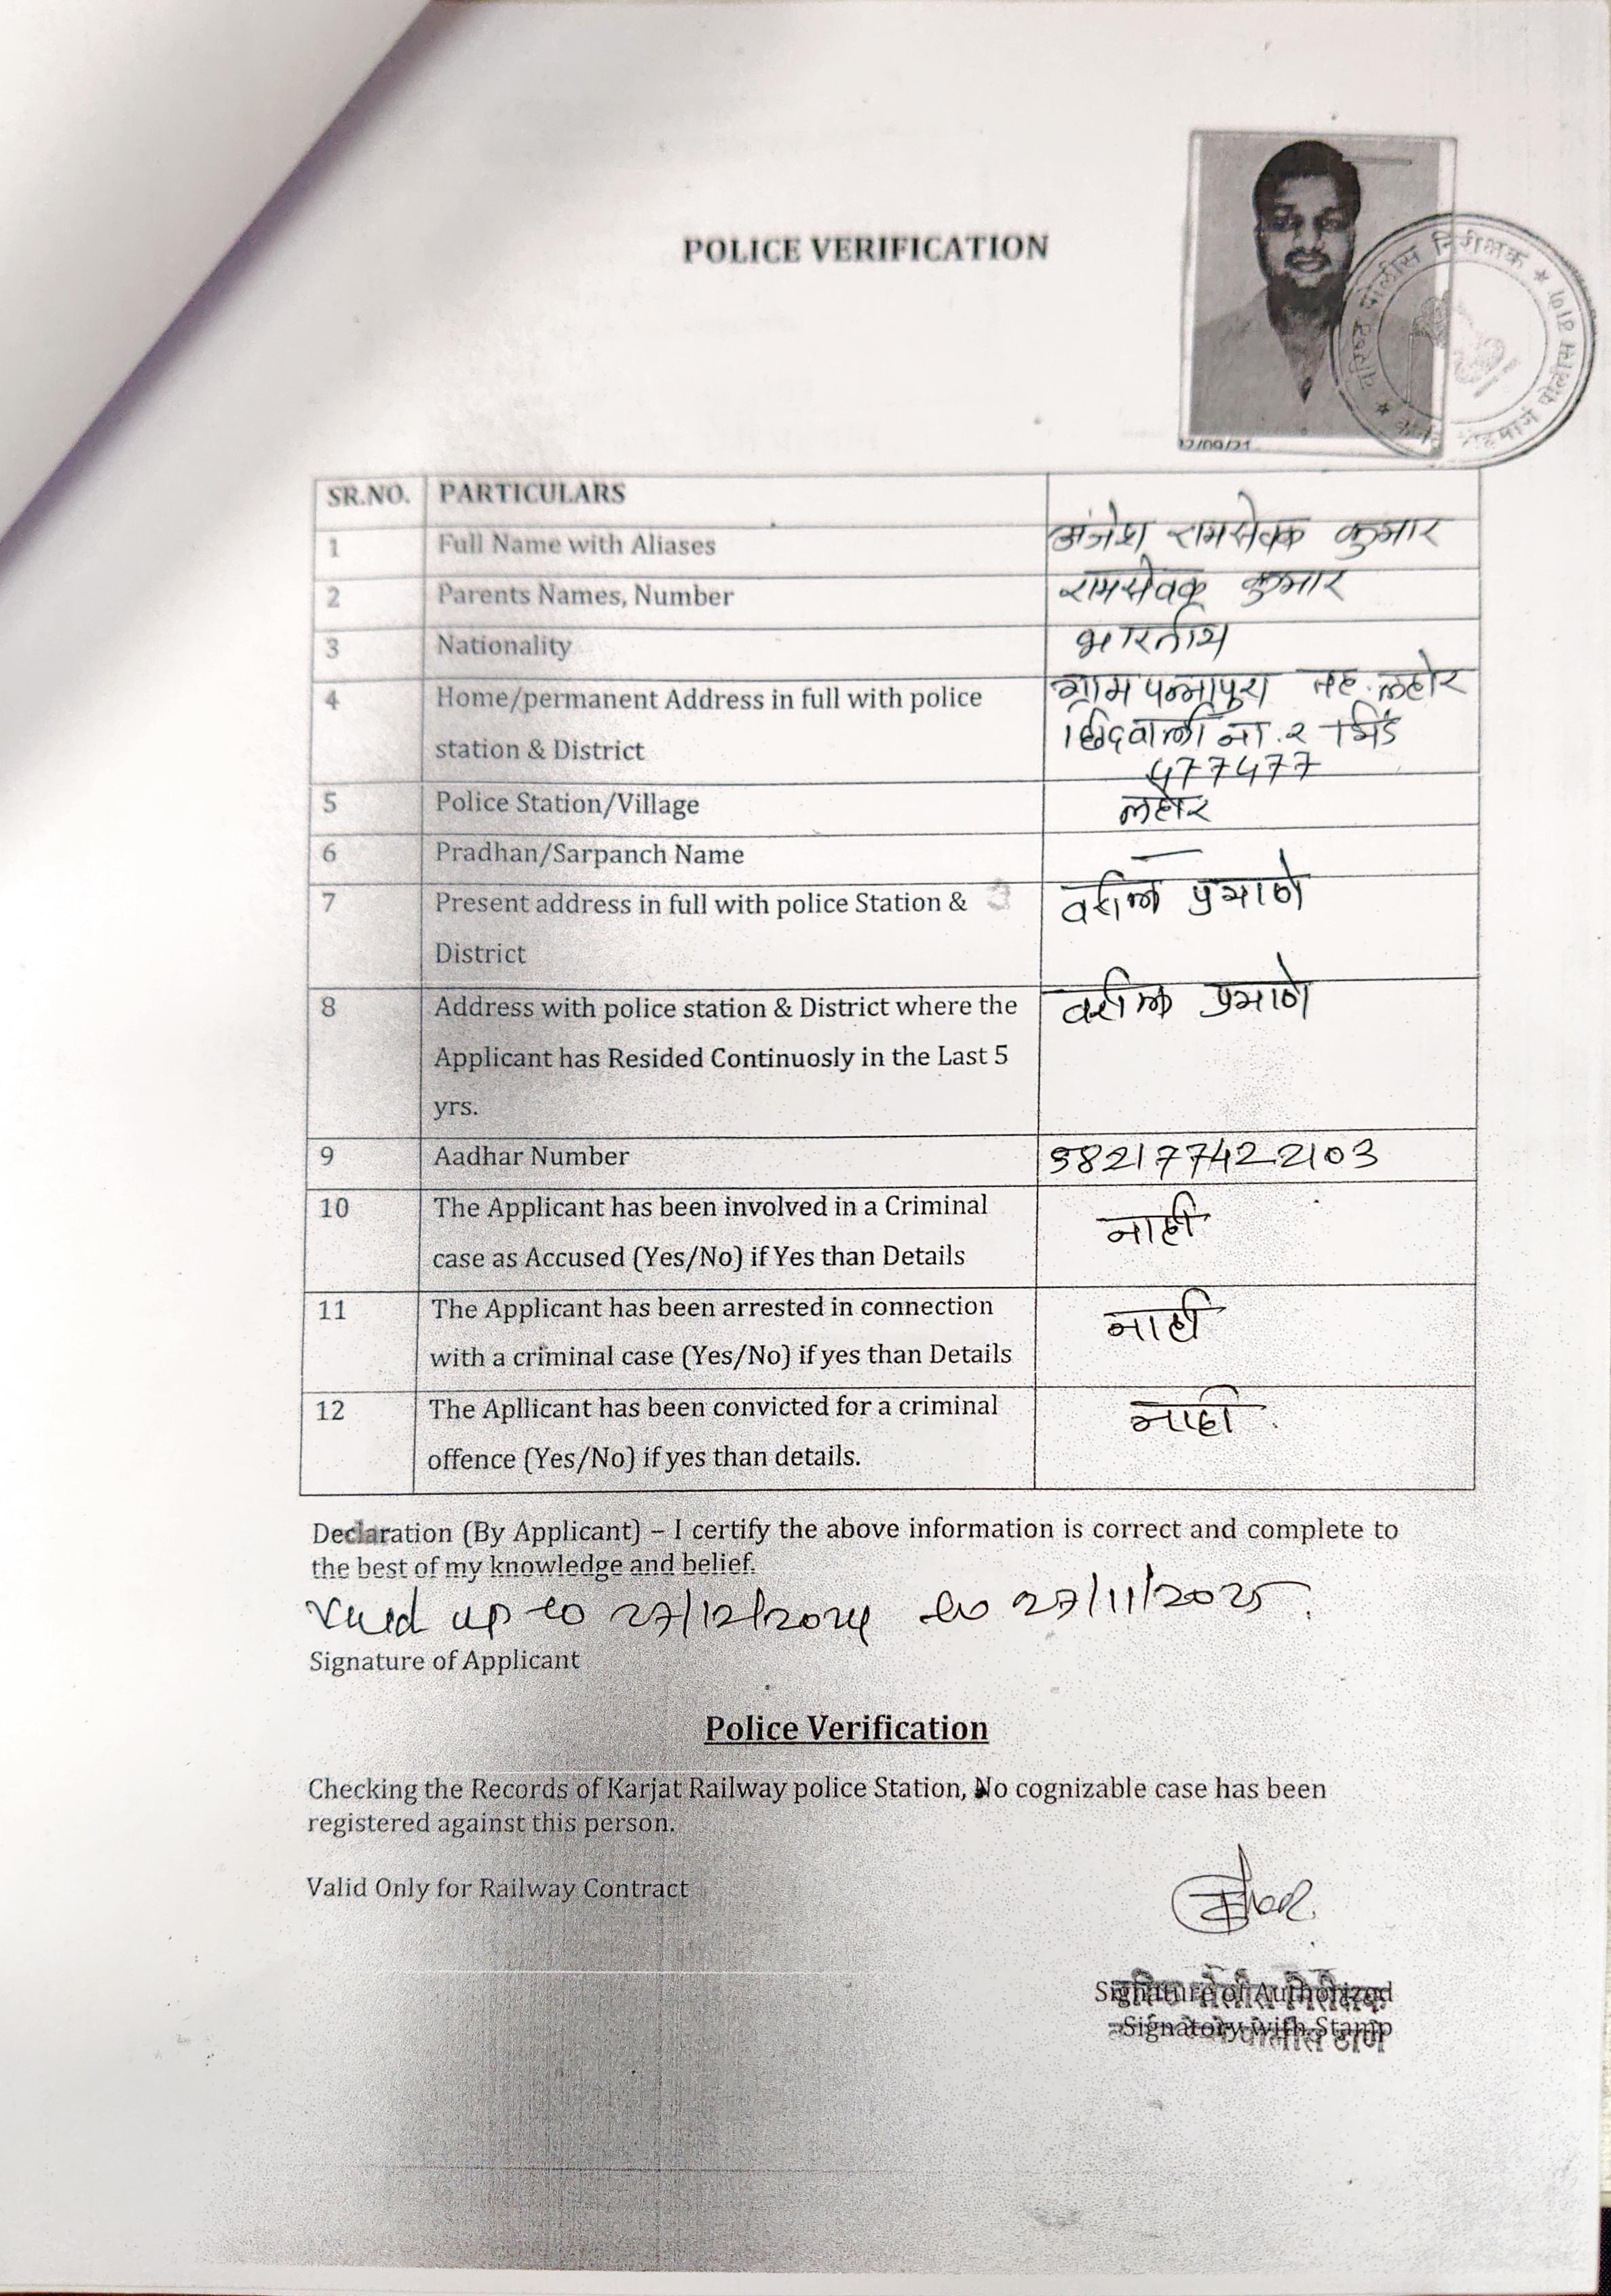 POLICE VERIFICATION
वरिष्ठ पोलीस निरीक्षक
लोहमार्ग पोलीस ठाणे
12/09/21
SR.NO. PARTICULARS
1 Full Name with Aliases अंजेश रामसेवक कुमार
2 Parents Names, Number रामसेवक कुमार
3 Nationality भारतीय
4 Home/permanent Address in full with police ग्राम पन्नापुरा तह. लहोर
station & District छिदवाली ना. २ भिंड
477477
5 Police Station/Village लहोर
6 Pradhan/Sarpanch Name —
7 Present address in full with police Station & वरील प्रमाणे
District
8 Address with police station & District where the वरील प्रमाणे
Applicant has Resided Continuosly in the Last 5
yrs.
9 Aadhar Number 982177422103
10 The Applicant has been involved in a Criminal नाही
case as Accused (Yes/No) if Yes than Details
11 The Applicant has been arrested in connection नाही
with a criminal case (Yes/No) if yes than Details
12 The Apllicant has been convicted for a criminal नाही.
offence (Yes/No) if yes than details.
Declaration (By Applicant) – I certify the above information is correct and complete to
the best of my knowledge and belief.
Valid up to 27/12/2024 to 27/11/2025.
Signature of Applicant
Police Verification
Checking the Records of Karjat Railway police Station, No cognizable case has been
registered against this person.
Valid Only for Railway Contract
Signature of Authorized
Signatory with Stamp